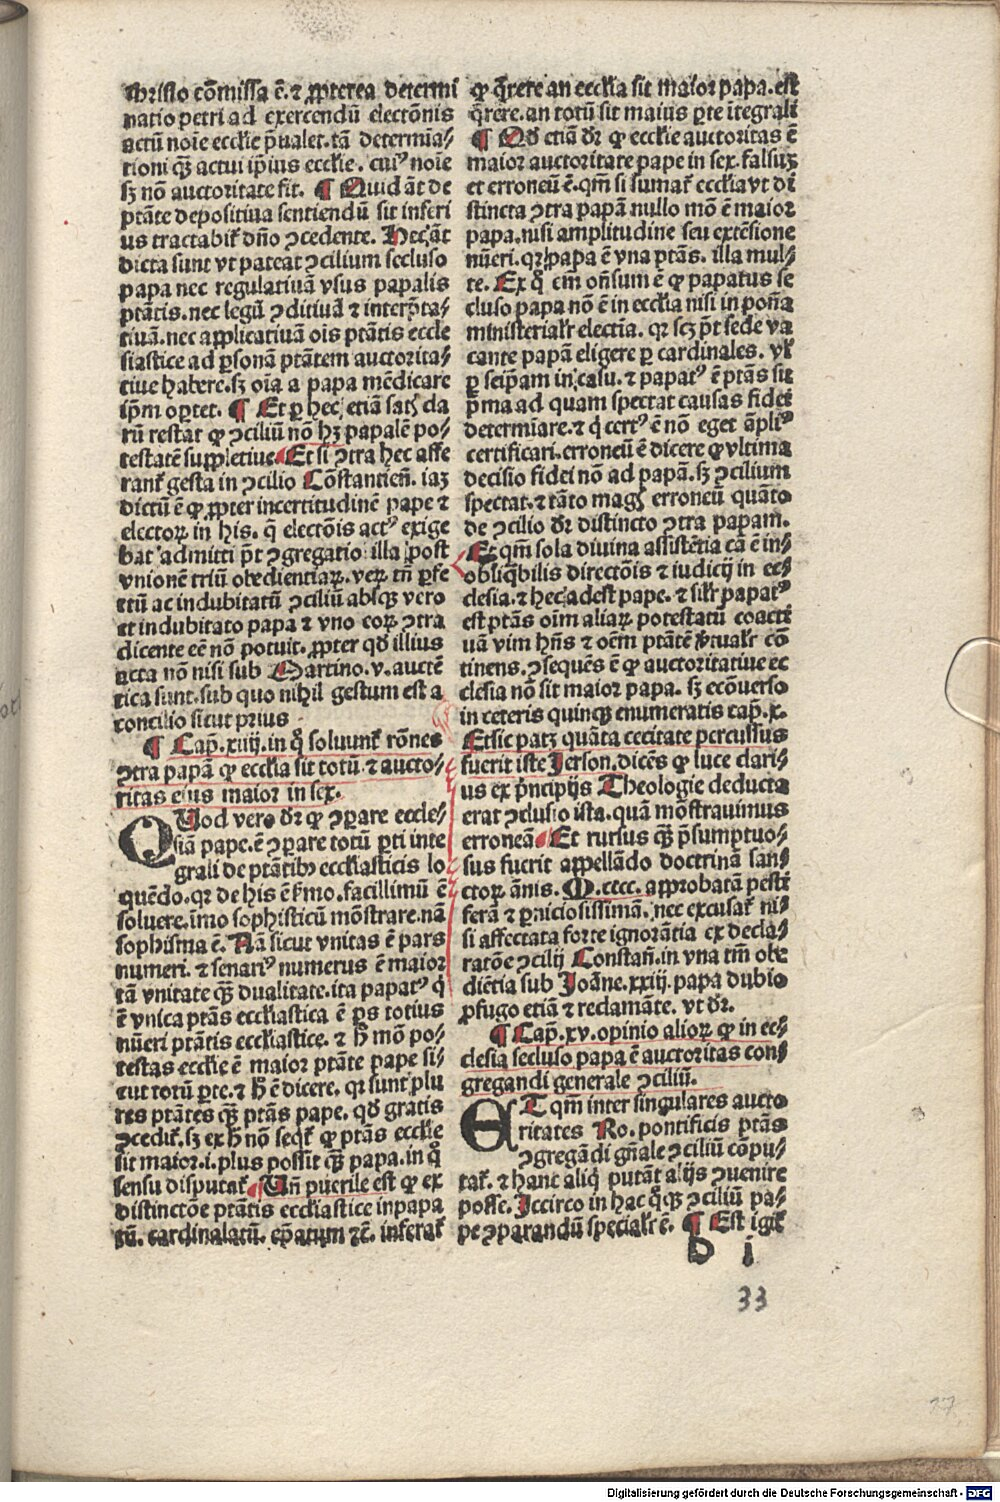 christo cõmissa ẽ. ⁊ ꝓpterea determi
natio petri ad exercendũ electõnis
actũ noĩe ecclie p̃ualet. tã determĩa⸗
tioni qȝ̃ actui ip̃ius ecclie. cuiꝰ noĩe
sȝ nõ auctoritate fit. ¶ Quid ãt de
ptãte depositiua sentiendũ sit inferi
us tractabit̃ dño ꝯcedente. Hec ãt
dicta sunt vt pateat ꝯcilium secluso
papa nec regulatiuã vsus papalis
ptãtis. nec legũ ꝯditiuã ⁊ interp̃ta⸗
tiuã. nec applicatiuã oĩs ptãtis eccle
siastice ad ꝑsonã ptãtem auctorita⸗
tiue habere. sȝ oĩa a papa mẽdicare
ip̃m oꝑtet. ¶ Et ꝑ hec etiã satꝭ da
rũ restat ꝙ ꝯciliũ nõ hȝ papalẽ po⸗
testatẽ suppletiue. ¶ Et si ꝯtra hec affe
rant̃ gesta in ꝯcilio Cõstantieñ. iaȝ
dictũ ẽ ꝙ ꝓpter incertitudinẽ pape ⁊
electoꝝ in his. q̃ electõis actꝰ exige
bat admitti p̃t ꝯgregatio illa post
vnionẽ triũ obedientiaꝝ. veꝝ tñ ꝑfe
ctũ ac indubitatũ ꝯciliũ absqȝ vero
et indubitato papa ⁊ vno eoꝝ ꝯtra
dicente eẽ nõ potuit. ꝓpter qđ illius
acta nõ nisi sub Martino. v. auctẽ
tica sunt. sub quo nihil gestum est a
concilio sicut prius
¶ Cap̃. xiiij. in q̊ soluunt̃ rõnes
ꝯtra papã ꝙ ecclia sit totũ. ⁊ aucto⸗
ritas eius maior in sex.
QUod vero dr̃ ꝙ ꝯpare eccle⸗
siã pape. ẽ ꝯpare totũ ꝑti inte
grali de ptãtibꝰ ecclesiasticis lo
quẽdo. qꝛ de his ẽ s̃mo. facillimũ ẽ
soluere. ĩmo sophisticũ mõstrare. nã
sophisma ẽ. Nã sicut vnitas ẽ pars
numeri. ⁊ senariꝰ numerus ẽ maior
tã vnitate qȝ̃ dualitate. ita papatꝰ q̇
ẽ vnica ptãs ecclesiastica ẽ ꝑs totius
nũeri ptãtis ecclesiastice. ⁊ h̊ mõ po⸗
testas ecclie ẽ maior ptãte pape si⸗
cut totũ ꝑte. ⁊ h̊ ẽ dicere. qꝛ sunt plu
res ptãtes qȝ̃ ptãs pape. qđ gratis
ꝯcedit̃. sȝ ex h̊ nõ seqt̃ ꝙ ptãs ecclie
sit maior. i. plus possit qȝ̃ papa. in q̊
sensu disputat̃. ¶ Uñ puerile est ꝙ ex
distinctõe ptãtis ecclesiastice in papa
tũ. cardinalatũ. ep̃atum ⁊c̃. inferat̃
ꝙ q̃rere an ecclia sit maior papa. est
q̃rere. an totũ sit maius ꝑte ĩtegrali
¶ Qđ etiã dr̃ ꝙ ecclie auctoritas ẽ
maior auctoritate pape in sex. falsuȝ
et erroneũ ẽ. qm̃ si sumat̃ ecclia vt di
stincta ꝯtra papã nullo mõ ẽ maior
papa. nisi amplitudine seu extẽsione
nũeri. qꝛ papa ẽ vna ptãs. illa mul⸗
te. Ex q̊ em̃ oñsum ẽ ꝙ papatus se
cluso papa nõ ẽ in ecclia nisi in poña
ministerialr̃ electĩa. qꝛ scȝ p̃t sede va
cante papã eligere ꝑ cardinales. vl̃
ꝑ seip̃am in casu. ⁊ papatꝰ ẽ ptãs sit
p̃ma ad quam spectat causas fidei
determĩare. ⁊ q̇ certꝰ ẽ nõ eget ãpliꝰ
certificari. erroneũ ẽ dicere ꝙ vltima
decisio fidei nõ ad papã. sȝ ꝯcilium
spectat. ⁊ tãto magꝭ erroneũ quãto
de ꝯcilio dr̃ distincto ꝯtra papam.
Et qm̃ sola diuina assistẽtia cã ẽ in⸗
obliq̃bilis directõis ⁊ iudicij in ec⸗
clesia. ⁊ hec adest pape. ⁊ silr̃ papatꝰ
est ptãs oĩm aliaꝝ potestatũ coacti
uã vim hñs ⁊ oẽm ptãtẽ v̓tualr̃ cõ
tinens. ꝯsequẽs ẽ ꝙ auctoritatiue ec
clesia nõ sit maior papa. sȝ ecõuerso
in ceteris quinqȝ enumeratis cap̃. x.
Et sic patȝ quãta cecitate percussus
fuerit iste Jerson. dicẽs ꝙ luce clari⸗
us ex p̃ncipijs Theologie deducta
erat ꝯclusio ista. quã mõstrauimus
erroneã ¶ Et rursus qȝ̃ p̃sumptuo⸗
sus fuerit appellãdo doctrinã san⸗
ctoꝝ ãnis. M. cccc. approbatã pesti
ferã ⁊ ꝑniciosissimã. nec excusat̃ ni⸗
si affectata forte ignorãtia ex decla⸗
ratõe ꝯcilij Constañ. in vna tm̃ obe
diẽtia sub Joãne. xxiij. papa dubio
ꝓfugo etiã ⁊ reclamãte. vt dr̃.
¶ Cap̃. xv. opinio alioꝝ ꝙ in ec⸗
clesia secluso papa ẽ auctoritas con⸗
gregandi generale ꝯciliũ.
ET qm̃ inter singulares aucto
ritates Ro. pontificis ptãs
ꝯgregãdi gñale ꝯciliũ cõpu⸗
tat̃. ⁊ hanc aliq̇ putãt alijs ꝯuenire
posse. Iccirco in hac q̊qȝ ꝯciliũ pa⸗
pe ꝯparandũ specialr̃ ẽ. ¶ Est igit̃
D i
33
Digitalisierung gefördert durch die Deutsche Forschungsgemeinschaft - DFG